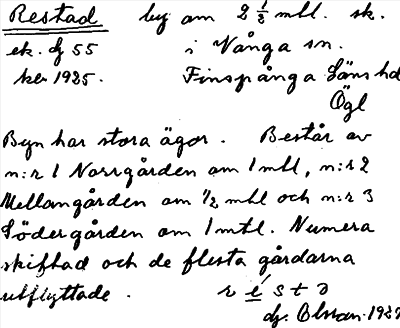 Restad by om 2 1/2 mtl. sk.
ek. bl 55 i Vånga sn.
ker 1925. Finspånga Läns hd
Ögl
Byn har stora ägor. Består av
n:r 1 Norrgården om 1 mtl, n:r 2
Mellomgården om 1/2 mtl och n:r 3
Södergården om 1 mtl. Numera
skiftad och de flesta gårdarna
utflyttade. r é s t a
Olsson. 192